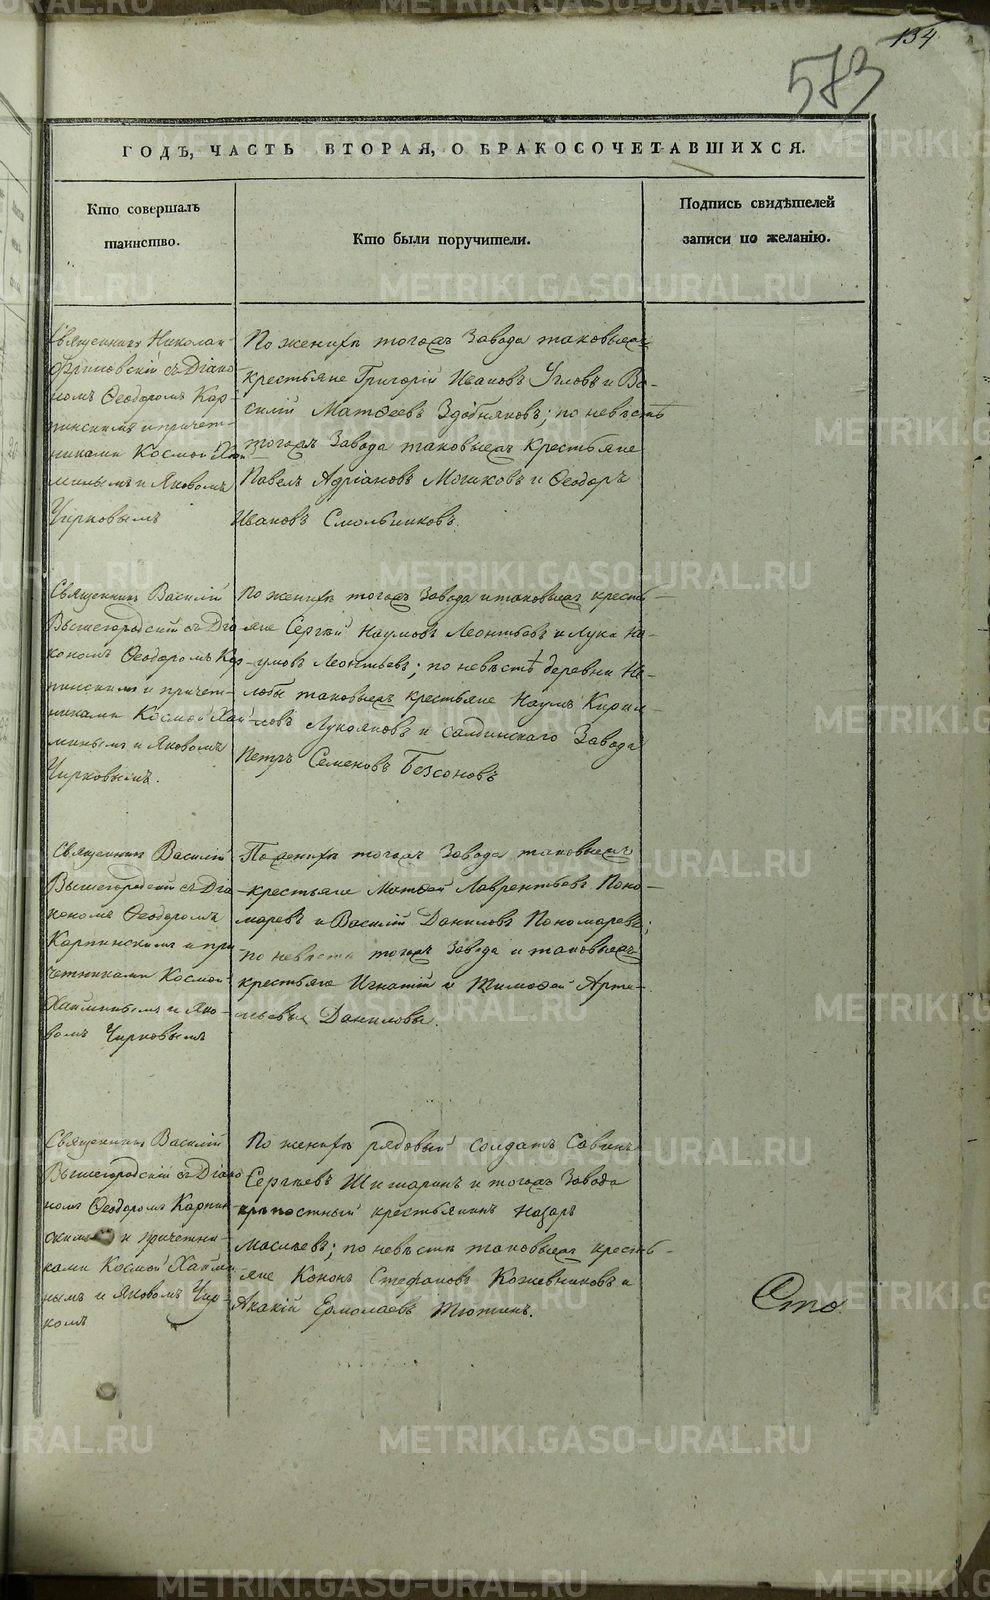 134
573
ГОДЪ, ЧАСТЬ ВТОРАЯ, О БРАКОСОЧЕТАВШИХСЯ.
Кто совершалъ
таинство.
Кто были поручители.
Подпись свидѣтелей
записи по желанію.
Священникъ Николай
съ Діако
номъ Ѳеодоромъ Кар-
пинскимъ и причет-
никами Космой Хай
минымъ и Яковомъ
Чирковымъ
По женихѣ тогожъ Завода таковыежъ
крестьяне Григорій Ивановъ Угловъ и Ва-
силій Матѳеевъ Здобняковъ; по невѣстѣ
тогожъ Завода таковыежъ крестьяне
Павелъ Адріановъ Мошковъ и Ѳеодоръ
Ивановъ Смольниковъ.
Священникъ Василій
Вышегородскій съ Діа
кономъ Ѳеодоромъ Кар-
пинскимъ и причет-
никами Космой Хай
минымъ и Яковомъ
Чирковымъ.
По женихѣ тогожъ Завода и таковыежъ кресть-
яне Сергѣй Наумовъ Леонтьевъ и Лука На-
умовъ Леонтьевъ; по невѣстѣ деревни Не-
лобы таковыежъ крестьяне Наумъ Кирил
ловъ Лукояновъ и Салдинскаго Завода
Петръ Семеновъ Безсоновъ
Священникъ Василій
Вышегородскій съ Діа
кономъ Ѳеодоромъ
Карпинскимъ и при
четниками Космой
Хайминымъ и Яко-
вомъ Чирковымъ
По женихѣ тогожъ Завода таковыежъ
крестьяне Матѳей Лаврентьевъ Поно-
маревъ и Василій Даниловъ Пономаревъ;
по невѣстѣ тогожъ Завода и таковыежъ
крестьяне Игнатій и Тимоѳей Арте-
мьевы Даниловы.
Священникъ Василій
Вышегородскій съ Діако
номъ Ѳеодоромъ Карпин
скимъ и причетни-
ками Космой Хайми
нымъ и Яковомъ Чир-
комъ
По женихѣ рядовый солдатъ Савинъ
Сергѣевъ Шишаринъ и тогожъ Завода
крѣпостный крестьянинъ Назаръ
Масляевъ; по невѣстѣ таковыежъ кресть-
яне Кононъ Стефановъ Кожевниковъ и
Акакій Ермолаевъ Тютинъ.
Сто
METRIKI.GASO-URAL.RU